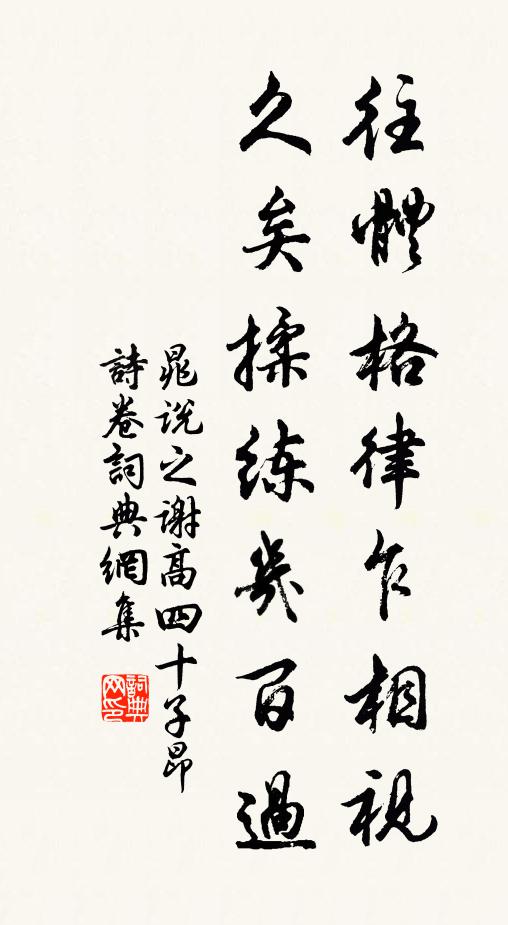 往體格律乍相視
久矣揉练幾百過
晁说之谢高四十子昂
詩卷詞典網集
詞典网印